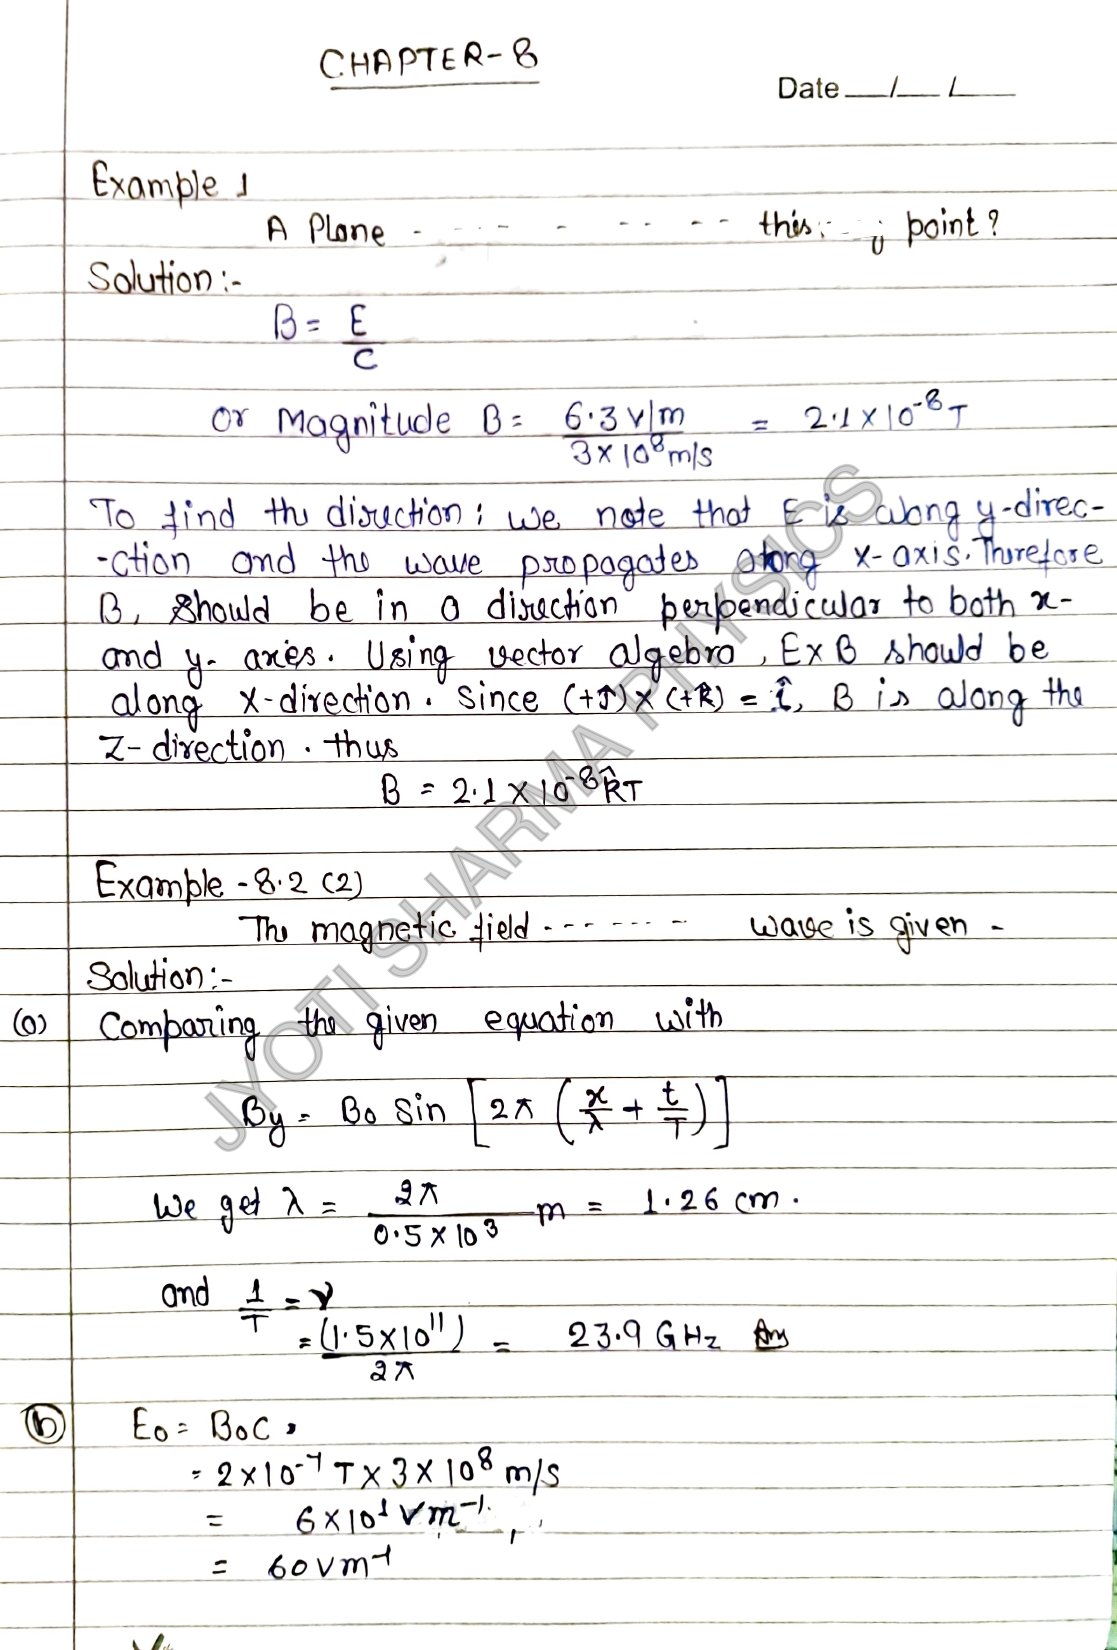 CHAPTER-8
Date __/__/__
Example 1
A Plane - - - - - - - - - this point?
Solution :-
B = E/C
Or Magnitude B = 6.3 V/m / 3 × 10⁸ m/s = 2.1 × 10⁻⁸ T
To find the direction; we note that E is along y-direc-
-ction and the wave propagates along x-axis. Therefore
B, should be in a direction perpendicular to both x-
and y- axes. Using vector algebra, E×B should be
along x-direction. Since (+ĵ) × (+k̂) = î, B is along the
Z-direction. thus
B = 2.1 × 10⁻⁸ k̂T
Example - 8.2 (2)
The magnetic field - - - - - - wave is given -
Solution :-
(a) Comparing the given equation with
By = B₀ Sin [2π (x/λ + t/T)]
We get λ = 2π / 0.5 × 10³ m = 1.26 cm.
and 1/T = ν
= (1.5 × 10¹¹) / 2π = 23.9 GHz Ans
(b) E₀ = B₀C,
= 2 × 10⁻⁷ T × 3 × 10⁸ m/s
= 6 × 10¹ V m⁻¹
= 60 V m⁻¹
JYOTI SHARMA PHYSICS